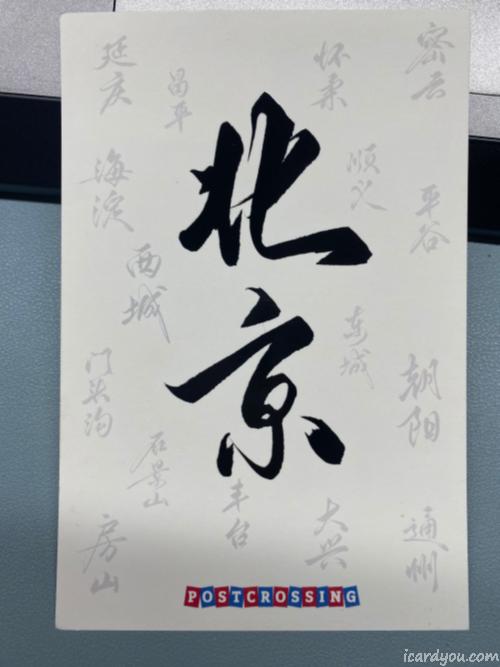 延庆
昌平
怀柔
密云
海淀
顺义
平谷
西城
北京
东城
门头沟
朝阳
石景山
丰台
房山
大兴
通州
POSTCROSSING
icardyou.com